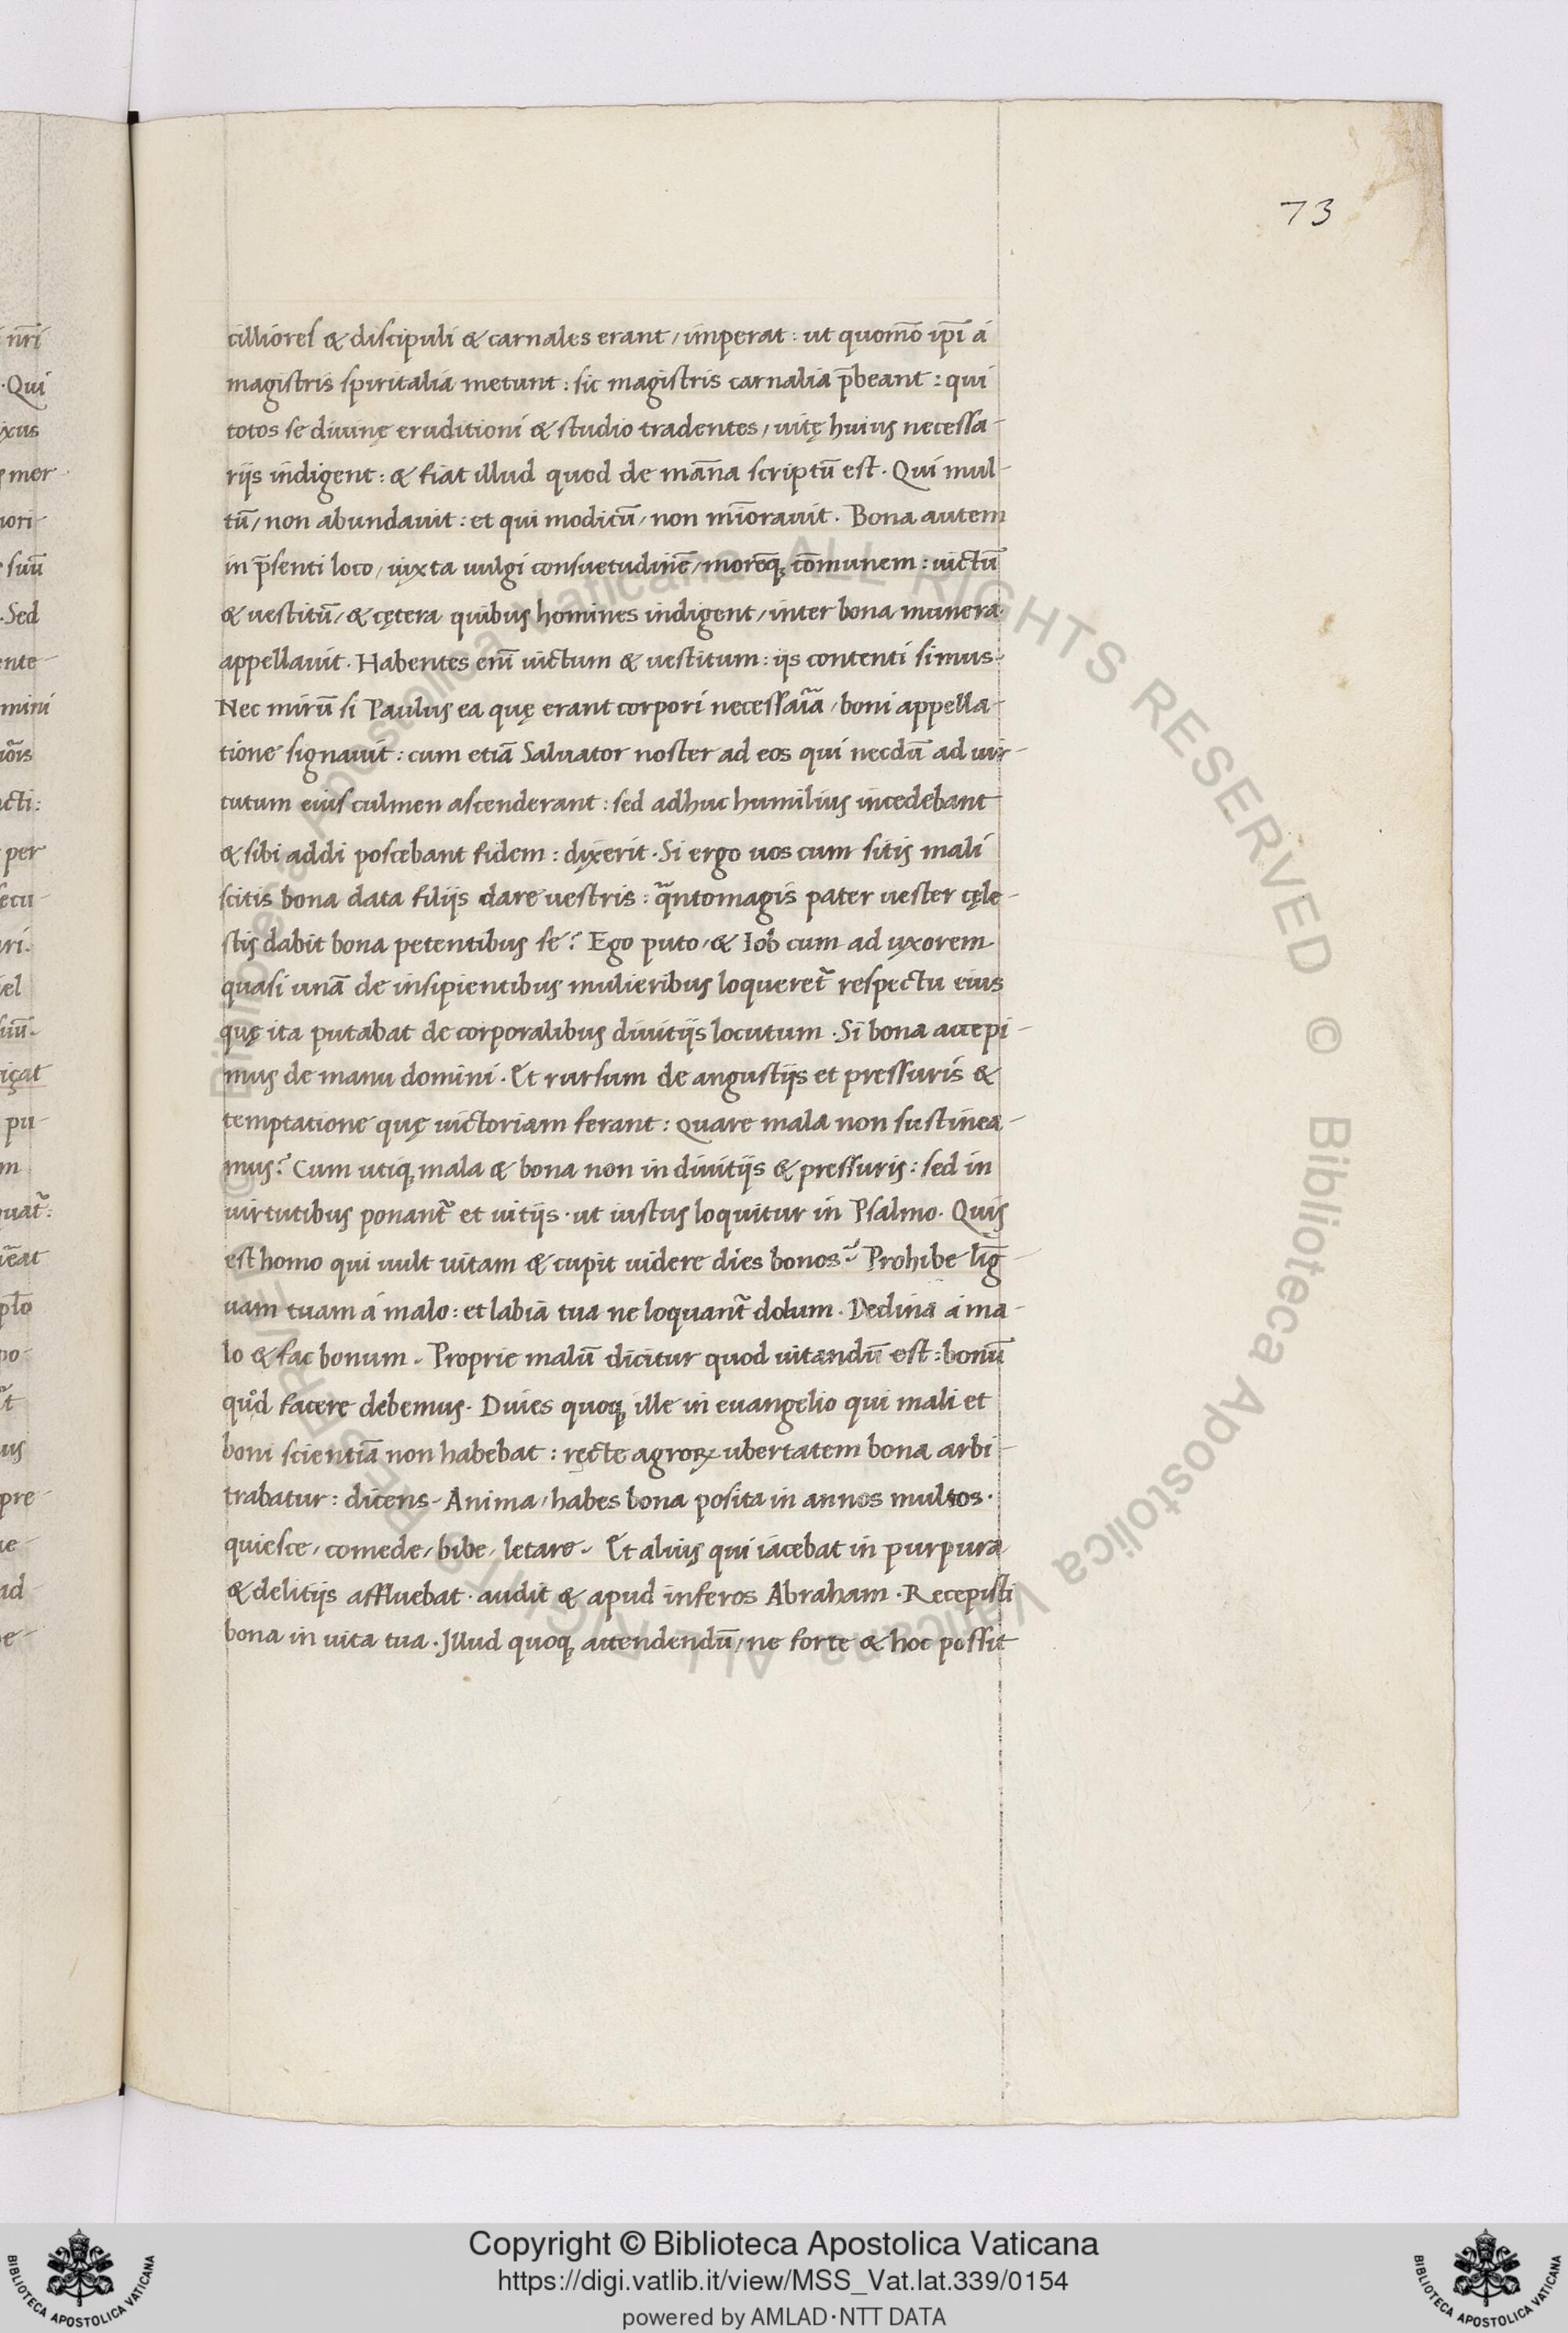 73
cilliores & discipuli & carnales erant / imperat : ut quom̄o ip̄i á
magistris spiritalia metunt : sic magistris carnalia p̄beant : qui
totos se diuinę eruditioni & studio tradentes / uitę huius necessa-
rijs indigent : & fiat illud quod de māna scriptū est . Qui mul-
tū / non abundauit : et qui modicū / non mīorauit . Bona autem
in p̄senti loco / iuxta uulgi consuetudinē / moreq̄ cōmunem : uictū
& uestitū / & cętera quibus homines indigent / inter bona munera
appellauit . Habentes enī uictum & uestitum : ijs contenti simus .
Nec mirū si Paulus ea quę erant corpori necessaīa / boni appella-
tione signauit : cum etiā Saluator noster ad eos qui necdū ad uir-
tutum eius culmen ascenderant : sed adhuc humilius incedebant
& sibi addi poscebant fidem : dixerit . Si ergo uos cum sitis mali
scitis bona data filijs dare uestris : q̄ntomagis pater uester cęle-
stis dabit bona petentibus se ? Ego puto / & Iob cum ad uxorem
quasi unā de insipientibus mulieribus loqueret̄ respectu eius
quę ita putabat de corporalibus diuitijs locutum . Si bona accepi-
mus de manu domini . Et rursum de angustijs et pressuris &
temptatione quę uictoriam ferant : Quare mala non sustinea-
mus ? Cum utiq; mala & bona non in diuitijs & pressuris : sed in
uirtutibus ponant̄ et uitijs . ut iustus loquitur in Psalmo . Quis
est homo qui uult uitam & cupit uidere dies bonos ? Prohibe līg-
uam tuam á malo : et labia tua ne loquant̄ dolum . Declina á ma-
lo & fac bonum . Proprie malū dicitur quod uitandū est : bonū
qd̊ facere debemus . Diues quoq; ille in euangelio qui mali et
boni scientiā non habebat : ręcte agroꝝ ubertatem bona arbi-
trabatur : dicens . Anima / habes bona posita in annos multos .
quiesce / comede / bibe / letare . Et alius qui iacebat in purpura
& delitijs affluebat . audit & apud inferos Abraham . Recepisti
bona in uita tua . Illud quoq; attendendū / ne forte & hoc possit
Copyright © Biblioteca Apostolica Vaticana
https://digi.vatlib.it/view/MSS_Vat.lat.339/0154
powered by AMLAD·NTT DATA